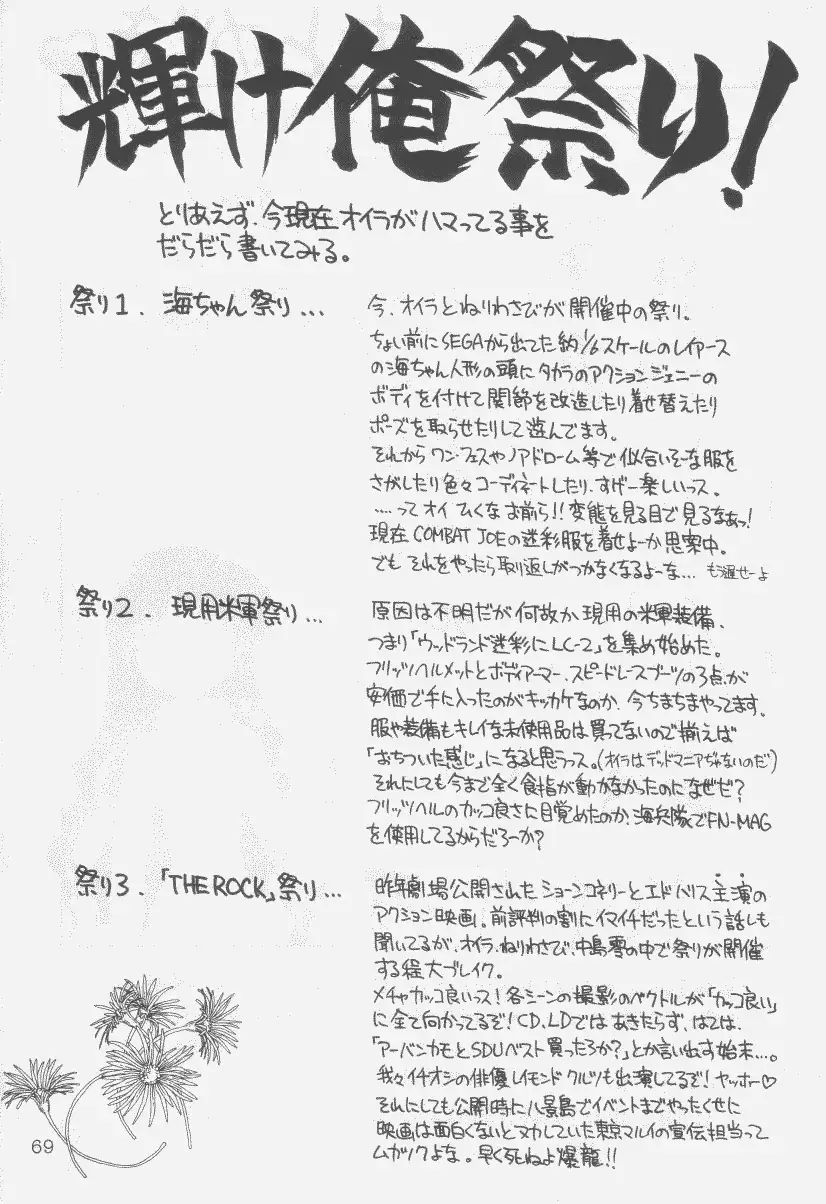 輝け俺祭り!
とりあえず、今現在オイラがハマってる事を
だらだら書いてみる。
祭り1. 海ちゃん祭り...
今、オイラとねりわさびが開催中の祭り。
ちょい前にSEGAから出てた約1/6スケールのレイアース
の海ちゃん人形の頭にタカラのアクションジェニーの
ボディを付けて関節を改造したり着せ替えたり
ポーズを取らせたりして遊んでます。
それからワン・フェスやノアドローム等で似合いそーな服を
さがしたり色々コーディネートしたり、すげー楽しいっス。
....ってオイ ひくなお前ら!!変態を見る目で見るなぁっ!
現在 COMBAT JOEの迷彩服を着せよーか思案中。
でも それをやったら取り返しがつかなくなるよーな... もう遅せーよ
祭り2. 現用米軍祭り...
原因は不明だが何故か現用の米軍装備、
つまり「ウッドランド迷彩にLC-2」を集め始めた。
フリッツヘルメットとボディアーマー、スピードレースブーツの3点が
安価で手に入ったのがキッカケなのか、今ちまちまやってます。
服や装備もキレイな未使用品は買ってないので揃えば
「おちついた感じ」になると思うっス。(オイラはデッドマニアぢゃないのだ)
それにしても今まで全く食指が動かなかったのになぜだ?
フリッツヘルのカッコ良さに目覚めたのか、海兵隊でFN-MAG
を使用してるからだろーか?
祭り3. 「THE ROCK」祭り...
昨年劇場公開されたショーンコネリーとエドハリス主演の
アクション映画。前評判の割にイマイチだったという話しも
聞いてるが、オイラ、ねりわさび、中島零の中で祭りが開催
する程大ブレイク。
メチャカッコ良いっス!各シーンの撮影のベクトルが「カッコ良い」
に全て向かってるぞ!CD、LDではあきたらず、はては、
「アーバンカモとSDUベスト買ったろか?」とか言い出す始末...。
我々イチオシの俳優レイモンド クルツも出演してるぞ!ヤッホー♡
それにしても公開時に八景島でイベントまでやったくせに
映画は面白くないとヌカしていた東京マルイの宣伝担当って
ムカツクよな。早く死ねよ爆龍!!
69